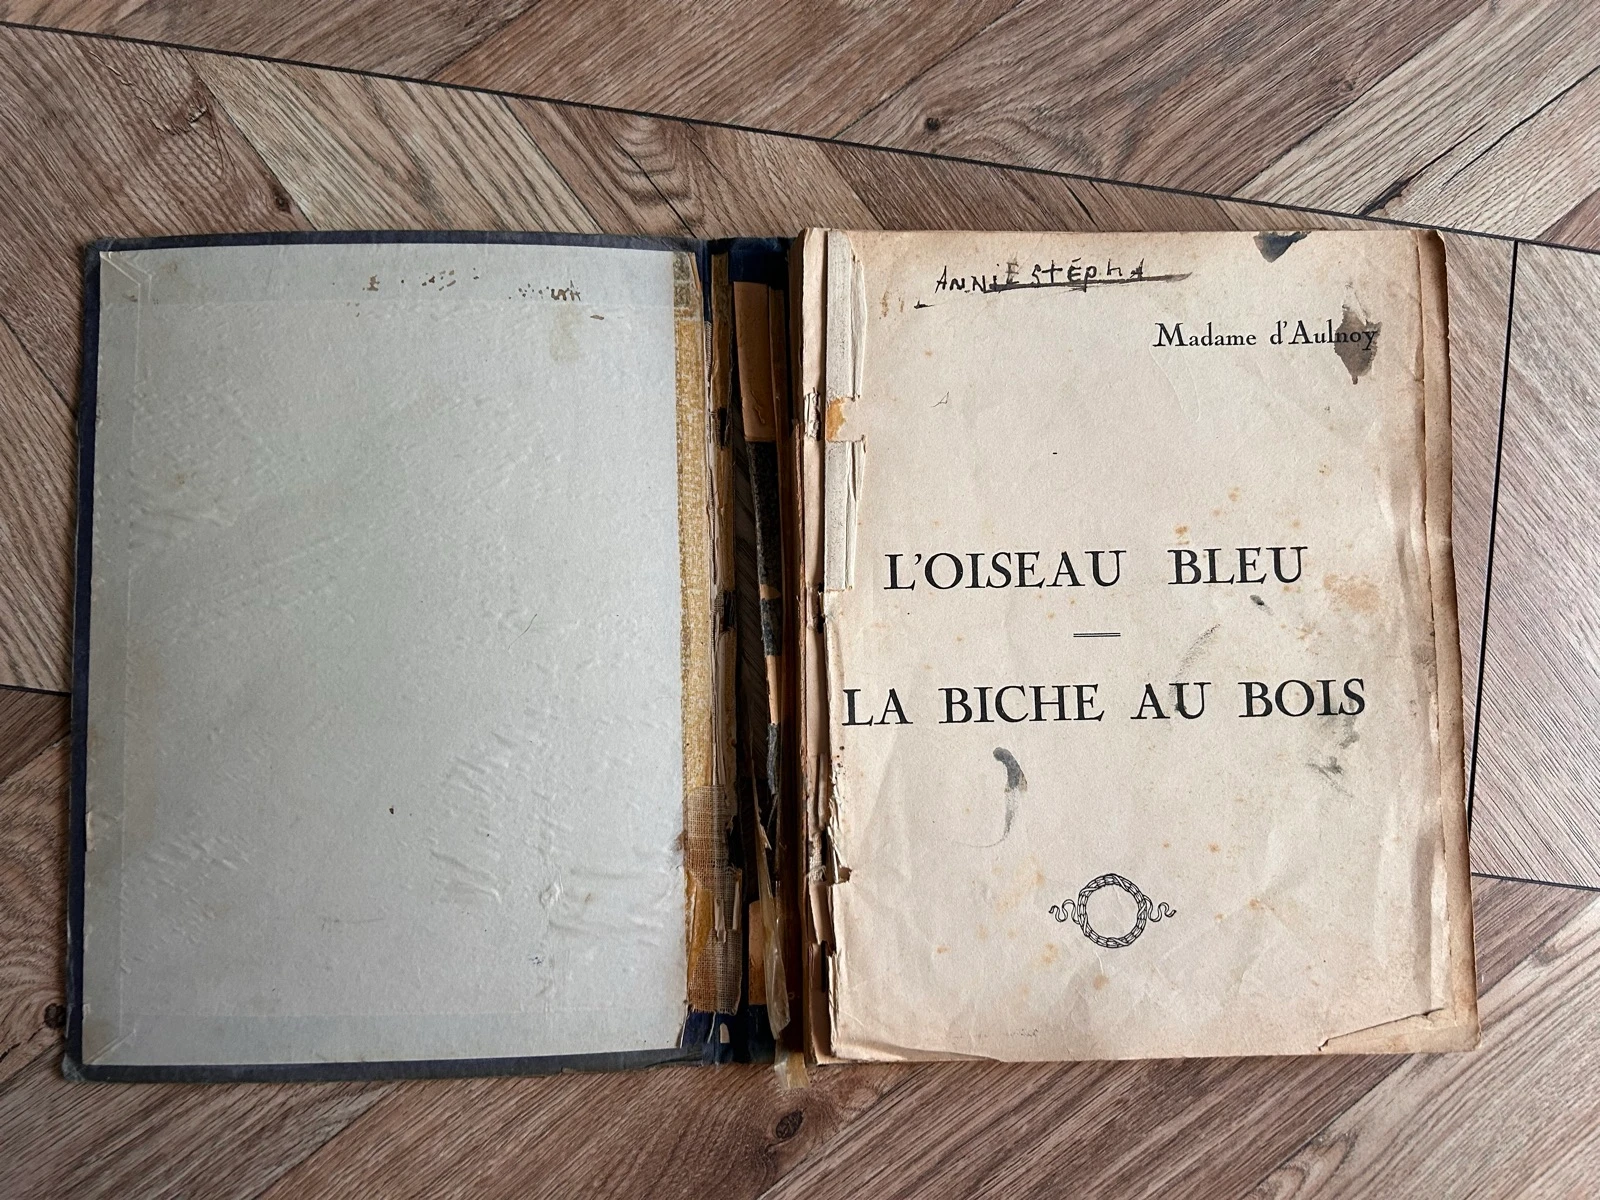 ANNIE STÉPHA
Madame d'Aulnoy
L'OISEAU BLEU
LA BICHE AU BOIS